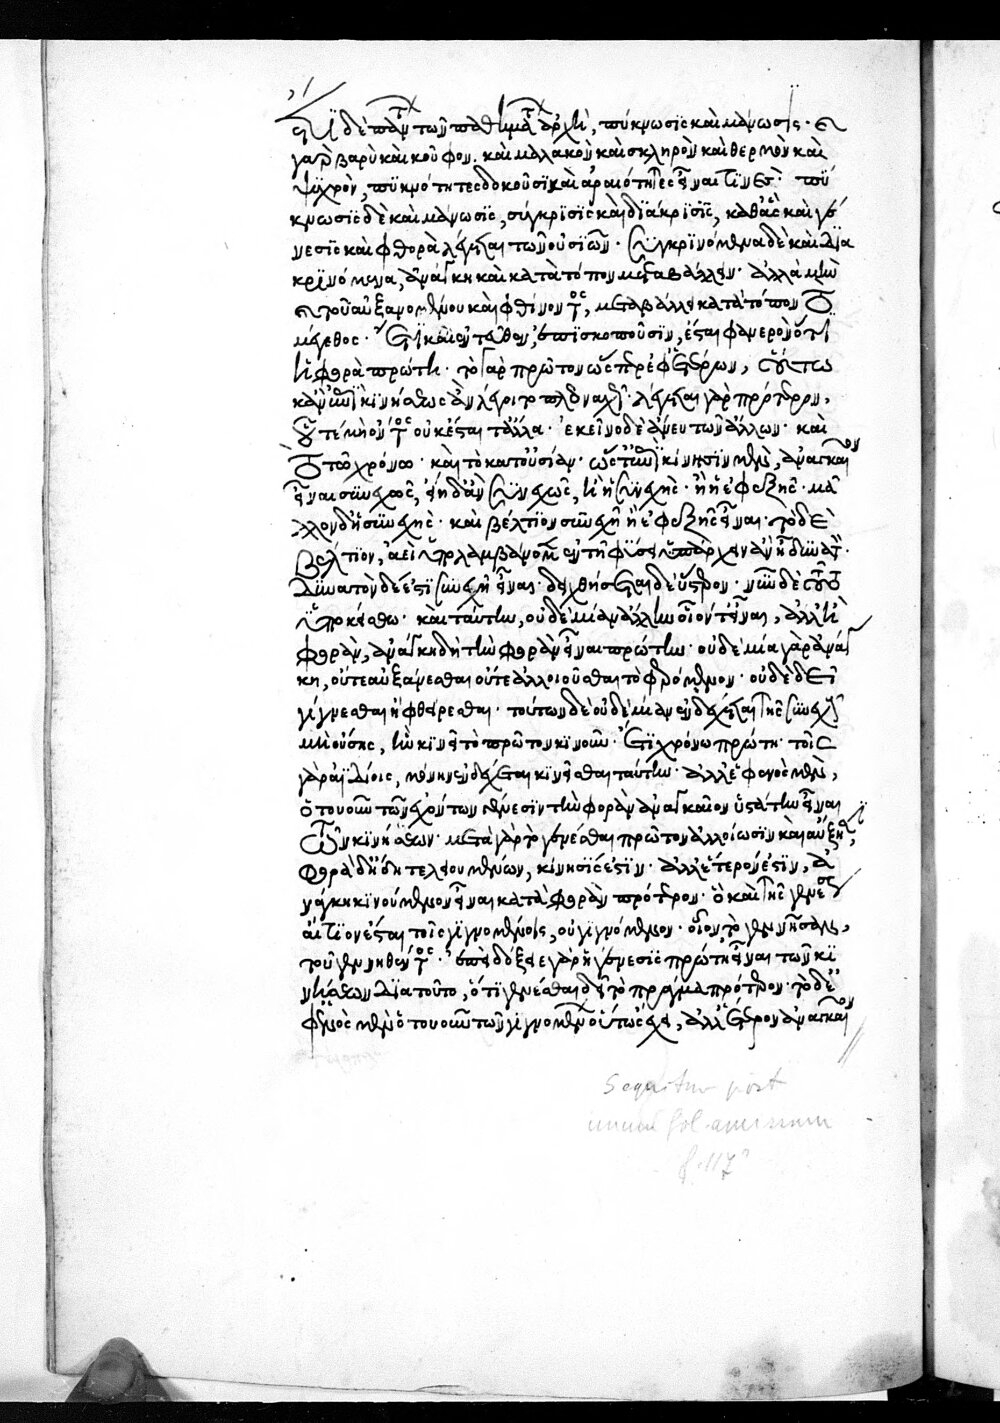 ἔτι δὲ πάντων τῶν παθημάτων ἀρχὴ, πύκνωσις καὶ μάνωσις· καὶ
γὰρ βαρὺ καὶ κοῦφον. καὶ μαλακὸν καὶ σκληρὸν καὶ θερμὸν καὶ
ψυχρὸν, πυκνότητες δοκοῦσι καὶ ἀραιότητες εἶναι τινές· πύ
κνωσις δὲ καὶ μάνωσις, σύγκρισις καὶ διάκρισις, καθ' ἃς καὶ γέ
νεσις καὶ φθορὰ λέγεται τῶν οὐσιῶν· συγκρινόμενα δὲ καὶ δια
κρινόμενα, ἀνάγκη καὶ κατὰ τόπον μεταβάλλειν· ἀλλὰ μὴν
καὶ τοῦ αὐξανομένου καὶ φθίνοντος, μεταβάλλει κατὰ τόπον τὸ
μέγεθος· ἔτι καὶ ἐντεῦθεν ἐπισκοποῦσιν, ἔσται φανερὸν ὅτι
ἡ φορὰ πρώτη· τὸ γὰρ πρῶτον ὥσπερ ἐφ' ἑτέρων, οὕτω
καὶ ἐπὶ κινήσεως ἂν λέγοιτο πλεοναχῶς· λέγεται γὰρ πρότερον,
οὗ τε μὴ ὄντος οὐκ ἔσται τἄλλα· ἐκεῖνο δὲ ἄνευ τῶν ἄλλων· καὶ
τὸ τῶ χρόνω· καὶ τὸ κατ' οὐσίαν· ὥστ' ἐπεὶ κίνησιν μὲν, ἀναγκαῖον
εἶναι συνεχῶς, εἴη δ' ἂν συνεχῶς, ἢ ἡ συνεχὴς· ἢ ἡ ἐφεξῆς· μᾶ
λλον δ' ἡ συνεχής· καὶ βέλτιον συνεχῆ ἢ ἐφεξῆς εἶναι· τὸ δὲ
βέλτιον, ἀεὶ ὑπολαμβάνομεν ἐν τῆ φύσει ὑπάρχειν ἂν ἦ δυνατόν·
δυνατὸν δέ ἐστι συνεχῆ εἶναι· δειχθήσεται δὲ ὕστερον· νῦν δὲ τοῦτο
ὑποκείσθω· καὶ ταύτην, οὐδεμίαν ἄλλην οἷόν τ' εἶναι, ἀλλ' ἢ
φοράν, ἀνάγκη δὴ τὴν φορὰν εἶναι πρώτην· οὐδεμία γὰρ ἀνάγ
κη, οὔτε αὐξάνεσθαι οὔτε ἀλλοιοῦσθαι τὸ φερόμενον· οὐδὲ δεῖ
γίγνεσθαι ἢ φθείρεσθαι· τούτων δὲ οὐδεμίαν ἐνδέχεται τῆς συνεχοῦς
μὴ οὔσης, ἣν κινεῖ τὸ πρῶτον κινοῦν· ἔτι χρόνω πρώτη· τοῖς
γὰρ ἀϊδίοις, μόνην ἐνδέχεται κινεῖσθαι ταύτην· ἀλλ' ἐφ' ἑνὸς μὲν,
ὁτουοῦν τῶν ἐχόντων γένεσιν τὴν φορὰν ἀναγκαῖον ὑστάτην εἶναι
τῶν κινήσεων· μετὰ γὰρ τὸ γενέσθαι πρῶτον ἀλλοίωσιν καὶ αὔξησιν,
φορὰ δ' ἤδη τελειουμένων, κίνησίς ἐστιν· ἀλλ' ἕτερόν ἐστιν, ἀ
νάγκη κινούμενον εἶναι κατὰ φορὰν πρότερον· ὃ καὶ τῆς γενέσεως
αἴτιον ἔσται τοῖς γιγνομένοις, οὐ γιγνόμενον· οἷον τὸ γεννῆσαν,
τοῦ γεννηθέντος· ἐπεὶ δόξειε γ' ἂν ἡ γένεσις πρώτη εἶναι τῶν κι
νήσεων διὰ τοῦτο, ὅτι γενέσθαι δεῖ τὸ πρᾶγμα πρότερον· τὸ δὲ
ἐφ' ἑνὸς μὲν ὁτουοῦν τῶν γιγνομένων οὕτως ἔχει, ἀλλ' ἕτερον ἀναγκαῖον
Sequitur post
unum fol. avulsum
f. 117